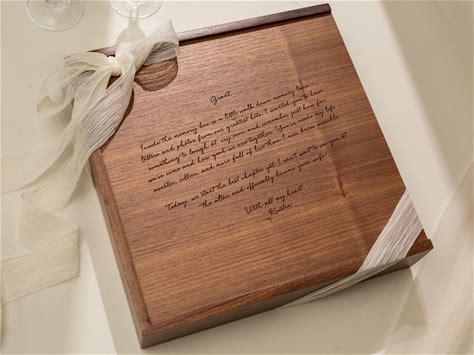 Grant,
Inside the memory box is a little walk down memory lane,
letters and photos from our greatest hits. I wanted you to have
something to laugh at, cry over, and remember just how far
we've come and how good we are together. You've made my life
sweeter, sillier, and more full of love than I ever knew possible.
Today, we start the best chapter yet. I can't wait to see you at
the altar and officially become your wife!
With all my heart,